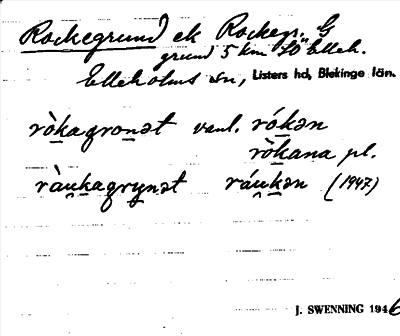 Rockegrund ek Rockegr. G
grund 5 km SO Elleh.
Elleholms sn, Listers hd, Blekinge län.
ròkagronət vanl. rókən
ròkana pl.
ràu̯kagry̠nət ráu̯kən (1947)
J. SWENNING 1946